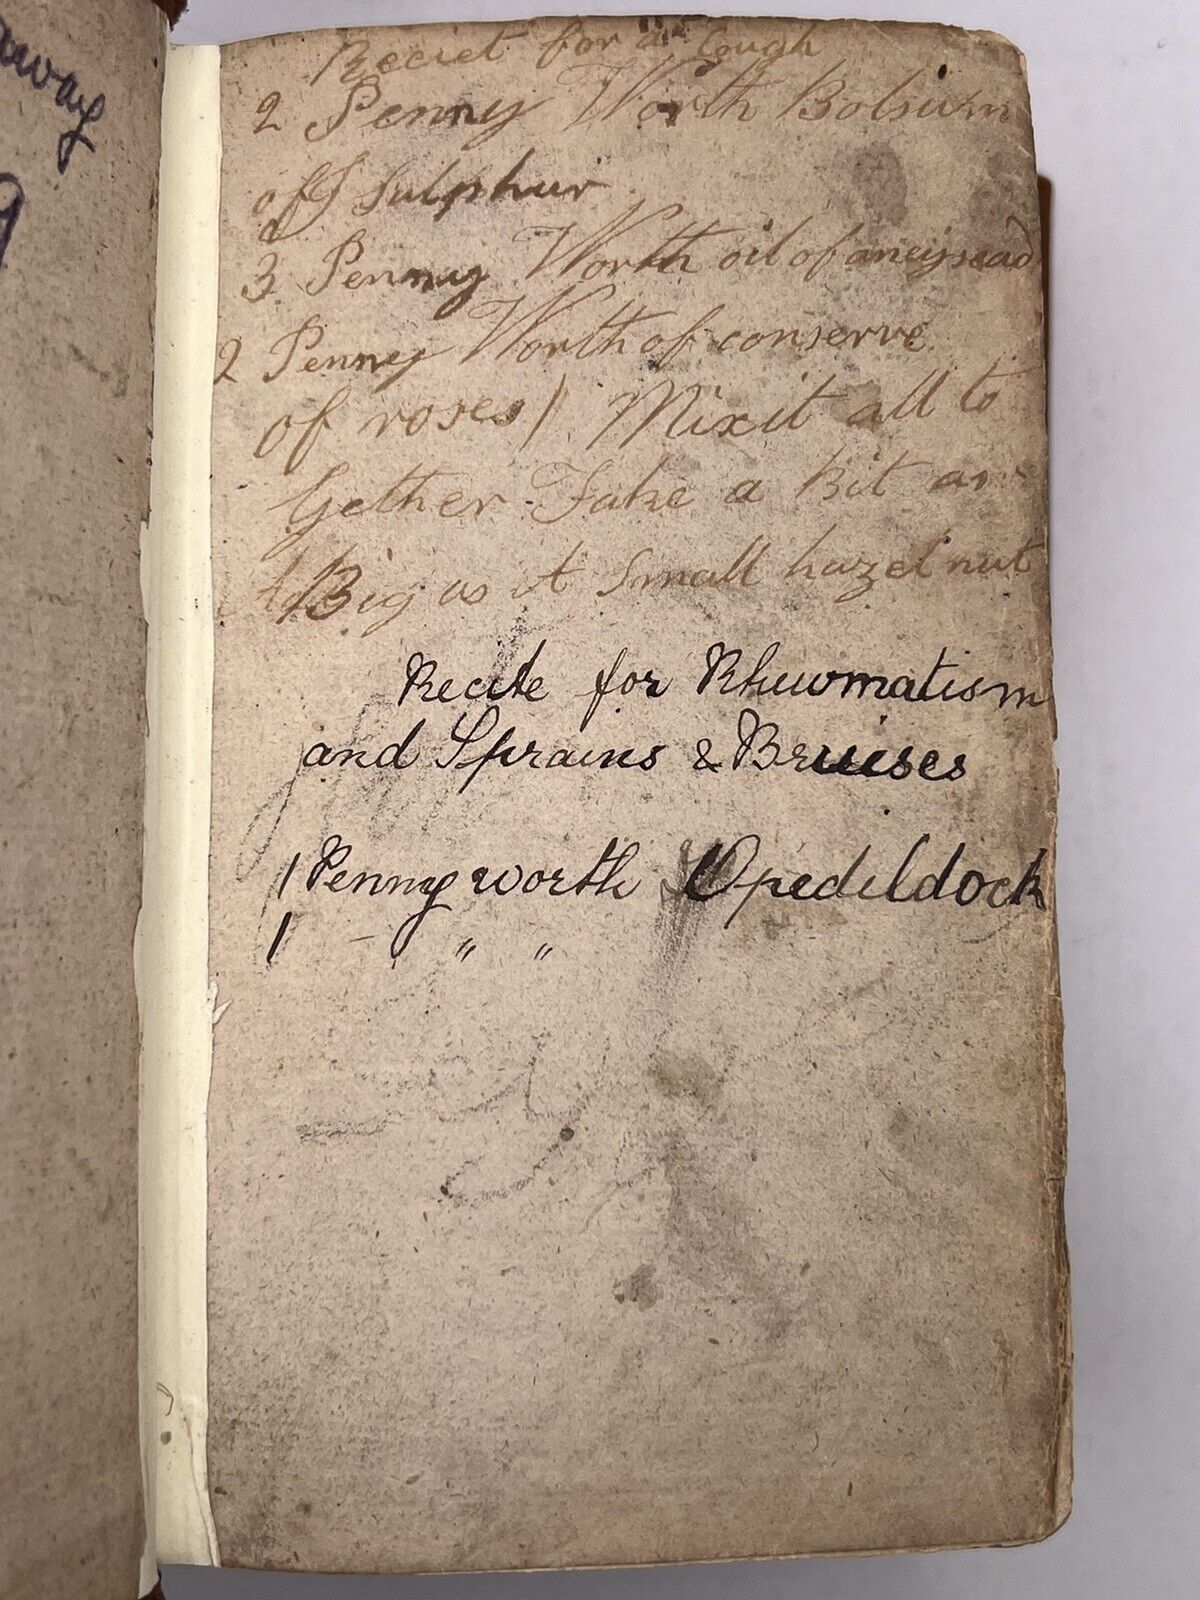 away
9
Reciet for a Cough
2 Penny Worth Bolsum
of Sulphur
3 Penny Worth oil of aneysead
2 Penney Worth of conserve
of roses) Mix it all to
Gether Take a Bit as
Big as A Small hazel nut
Recite for Rhewmatism
and Sprains & Bruises
1 Penny worth Opedildock
1 - " "